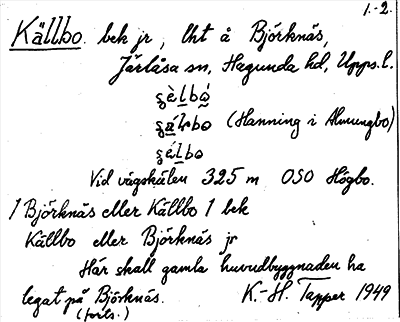 1.-2.
Källbo. bek jr, lht å Björknäs,
Järlåsa sn, Hagunda hd, Upps.l.
(Hanning i Almungbo)
Vid vägskälen 325 m OSO Högbo.
1 Björknäs eller Källbo 1 bek
Källbo eller Björknäs jr
Här skall gamla huvudbyggnaden ha
legat på Björknäs. K.-H. Tapper 1949
(forts.)